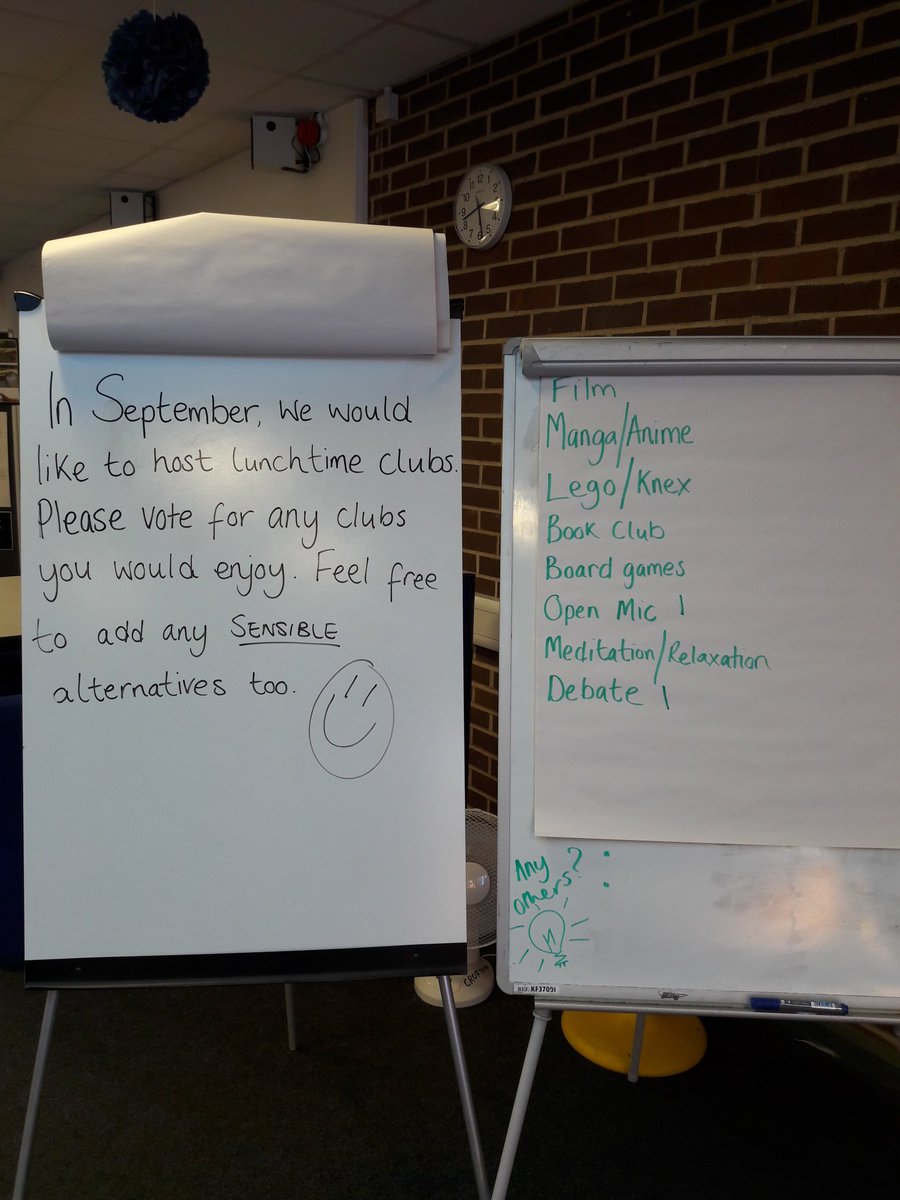 In September, we would
like to host lunchtime clubs.
Please vote for any clubs
you would enjoy. Feel free
to add any SENSIBLE
alternatives too.
Film
Manga/Anime
Lego/Knex
Book Club
Board games
Open Mic 1
Meditation/Relaxation
Debate 1
Any
others?
REF. KF37091
CROWN
12
1
2
3
4
5
6
7
8
9
10
11